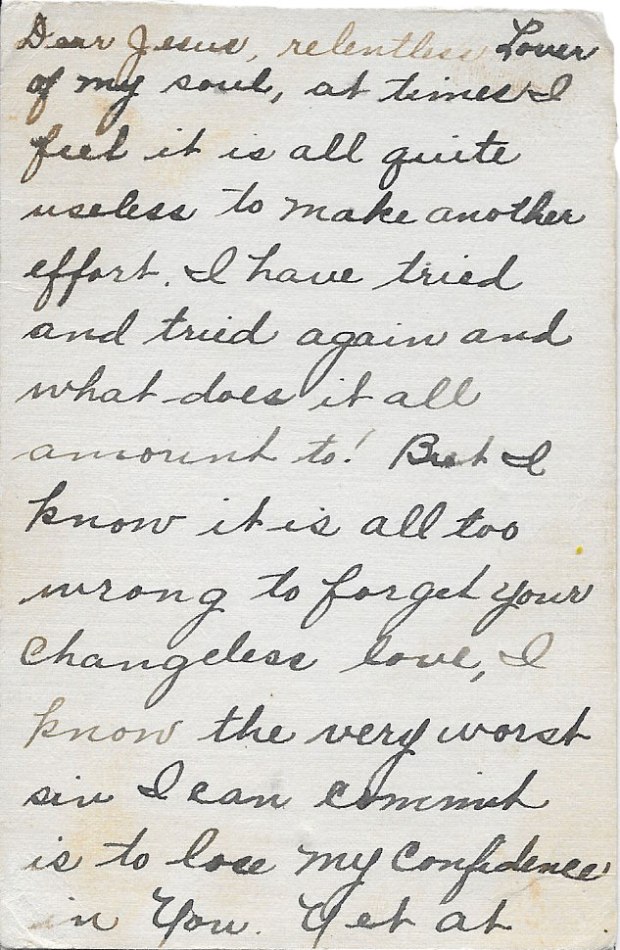 Dear Jesus, relentless Lover
of my soul, at times I
feel it is all quite
useless to make another
effort. I have tried
and tried again and
what does it all
amount to! But I
know it is all too
wrong to forget your
changeless love, I
know the very worst
sin I can commit
is to lose my confidence
in You. Yet at